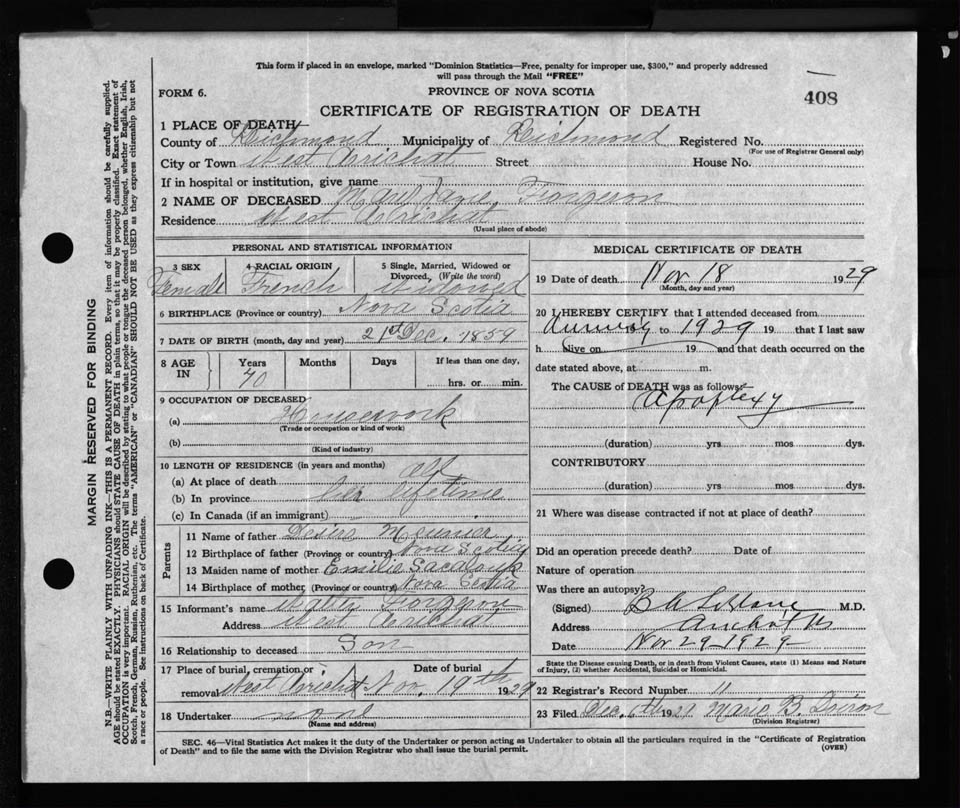 This form if placed in an envelope, marked "Dominion Statistics—Free, penalty for improper use, $300," and properly addressed
will pass through the Mail "FREE"
FORM 6.
PROVINCE OF NOVA SCOTIA
408
CERTIFICATE OF REGISTRATION OF DEATH
1 PLACE OF DEATH
County of Richmond Municipality of Richmond Registered No.
(For use of Registrar General only)
City or Town West Arichat Street House No.
If in hospital or institution, give name
2 NAME OF DECEASED Mary Jane Forgeron
Residence West Arichat
(Usual place of abode)
PERSONAL AND STATISTICAL INFORMATION
3 SEX
Female
4 RACIAL ORIGIN
French
5 Single, Married, Widowed or
Divorced (Write the word)
Widowed
6 BIRTHPLACE (Province or country) Nova Scotia
7 DATE OF BIRTH (month, day and year) 21st Dec. 1859
8 AGE
IN
Years
70
Months
Days
If less than one day,
hrs. or min.
9 OCCUPATION OF DECEASED
(a) Housework
(Trade or occupation or kind of work)
(b)
(Kind of industry)
10 LENGTH OF RESIDENCE (in years and months)
(a) At place of death all
(b) In province her lifetime
(c) In Canada (if an immigrant)
Parents
11 Name of father
12 Birthplace of father (Province or country) Nova Scotia
13 Maiden name of mother Emilie
14 Birthplace of mother (Province or country) Nova Scotia
15 Informant's name Forgeron
Address West Arichat
16 Relationship to deceased Son
17 Place of burial, cremation or
removal West Arichat
Date of burial
Nov. 19th 1929
18 Undertaker none
(Name and address)
MEDICAL CERTIFICATE OF DEATH
19 Date of death Nov 18 1929
(Month, day and year)
20 I HEREBY CERTIFY that I attended deceased from
to 1929 19 that I last saw
h alive on 19 and that death occurred on the
date stated above, at m.
The CAUSE of DEATH was as follows:
Apoplexy
(duration) yrs mos dys.
CONTRIBUTORY
(duration) yrs mos dys.
21 Where was disease contracted if not at place of death?
Did an operation precede death? Date of
Nature of operation
Was there an autopsy?
(Signed) B A LeBlanc M.D.
Address Arichat NS
Date Nov 29 1929
State the Disease causing Death, or in death from Violent Causes, state (1) Means and Nature
of Injury, (2) whether Accidental, Suicidal or Homicidal.
22 Registrar's Record Number 11
23 Filed Dec. 6th 1929 Marie B. Doiron
(Division Registrar)
SEC. 46—Vital Statistics Act makes it the duty of the Undertaker or person acting as Undertaker to obtain all the particulars required in the "Certificate of Registration
of Death" and to file the same with the Division Registrar who shall issue the burial permit.
(OVER)
MARGIN RESERVED FOR BINDING
N.B.—WRITE PLAINLY WITH UNFADING INK—THIS IS A PERMANENT RECORD. Every item of information should be carefully supplied.
AGE should be stated EXACTLY. PHYSICIANS should STATE CAUSE OF DEATH in plain terms, so that it may be properly classified. Exact statement of
OCCUPATION is very important. RACIAL ORIGIN will be described by stating to what people or tongue the deceased person belonged, whether English, Irish,
Scotch, French, German, Russian, Ruthenian, etc. The terms "AMERICAN" or "CANADIAN" SHOULD NOT BE USED as they express citizenship but not
a race or people. See instructions on back of Certificate.